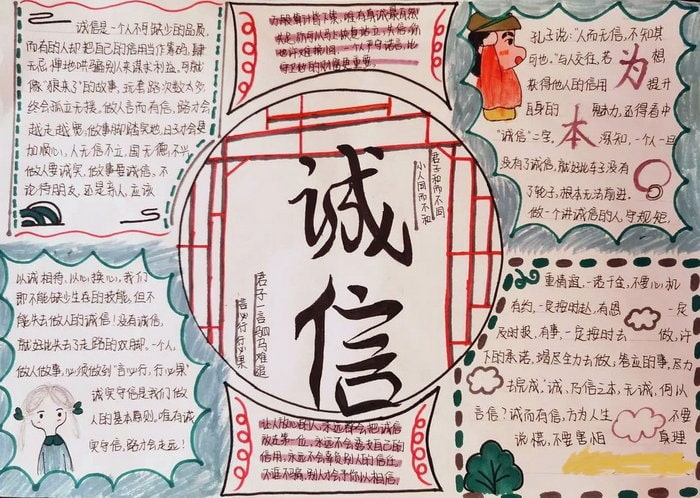 诚信是一个人不可缺少的品质,
而有的人却把自己的信用当作筹码,肆
无忌惮地哄骗别人来谋求利益,可就
像“狼来了”的故事,玩着路次数太多
终会孤立无援,做人言而有信,路才会
越走越宽,做事脚踏实地,日子才会更
加顺心,人无信不立,国无德不兴,
做人要诚实,做事要诚信,不
论待朋友,还是亲人,应该
孔子说:“人而无信,不知其
可也。”与人交往,若想
获得他人的信用提升
自身的魅力,还得看中
“诚信”二字。深知,一个人一旦
没有了诚信,就好比车子没有
了轮子,根本无法前进,
做一个讲诚信的人,守规矩,
为
本
诚
信
君子和而不同
小人同而不和
君子一言驷马难追
言必行行必果
以诚相待,以心换心,我们
即不能缺少生存的技能,但不
能失去做人的诚信!没有诚信,
就好比失去了走路的双脚。一个人,
做人做事,必须做到“言必行,行必果”
诚实守信是我们做
人的基本原则,唯有诚
实守信,路才会走远!
重情谊,一诺千金,不要心机
有约,一定按时赴,有恩一定
及时报,有事,一定按时去做,许
下的承诺,竭尽全力去做;答应的事,尽力
去完成,诚,乃信之本,无诚,何以
言信?诚而有信,方为人生不要
说谎,不要害怕真理
让人放心的人,永远都会把诚信
放在第一位,永远不会丢失自己的
信用,永远不会辜负别人的信任